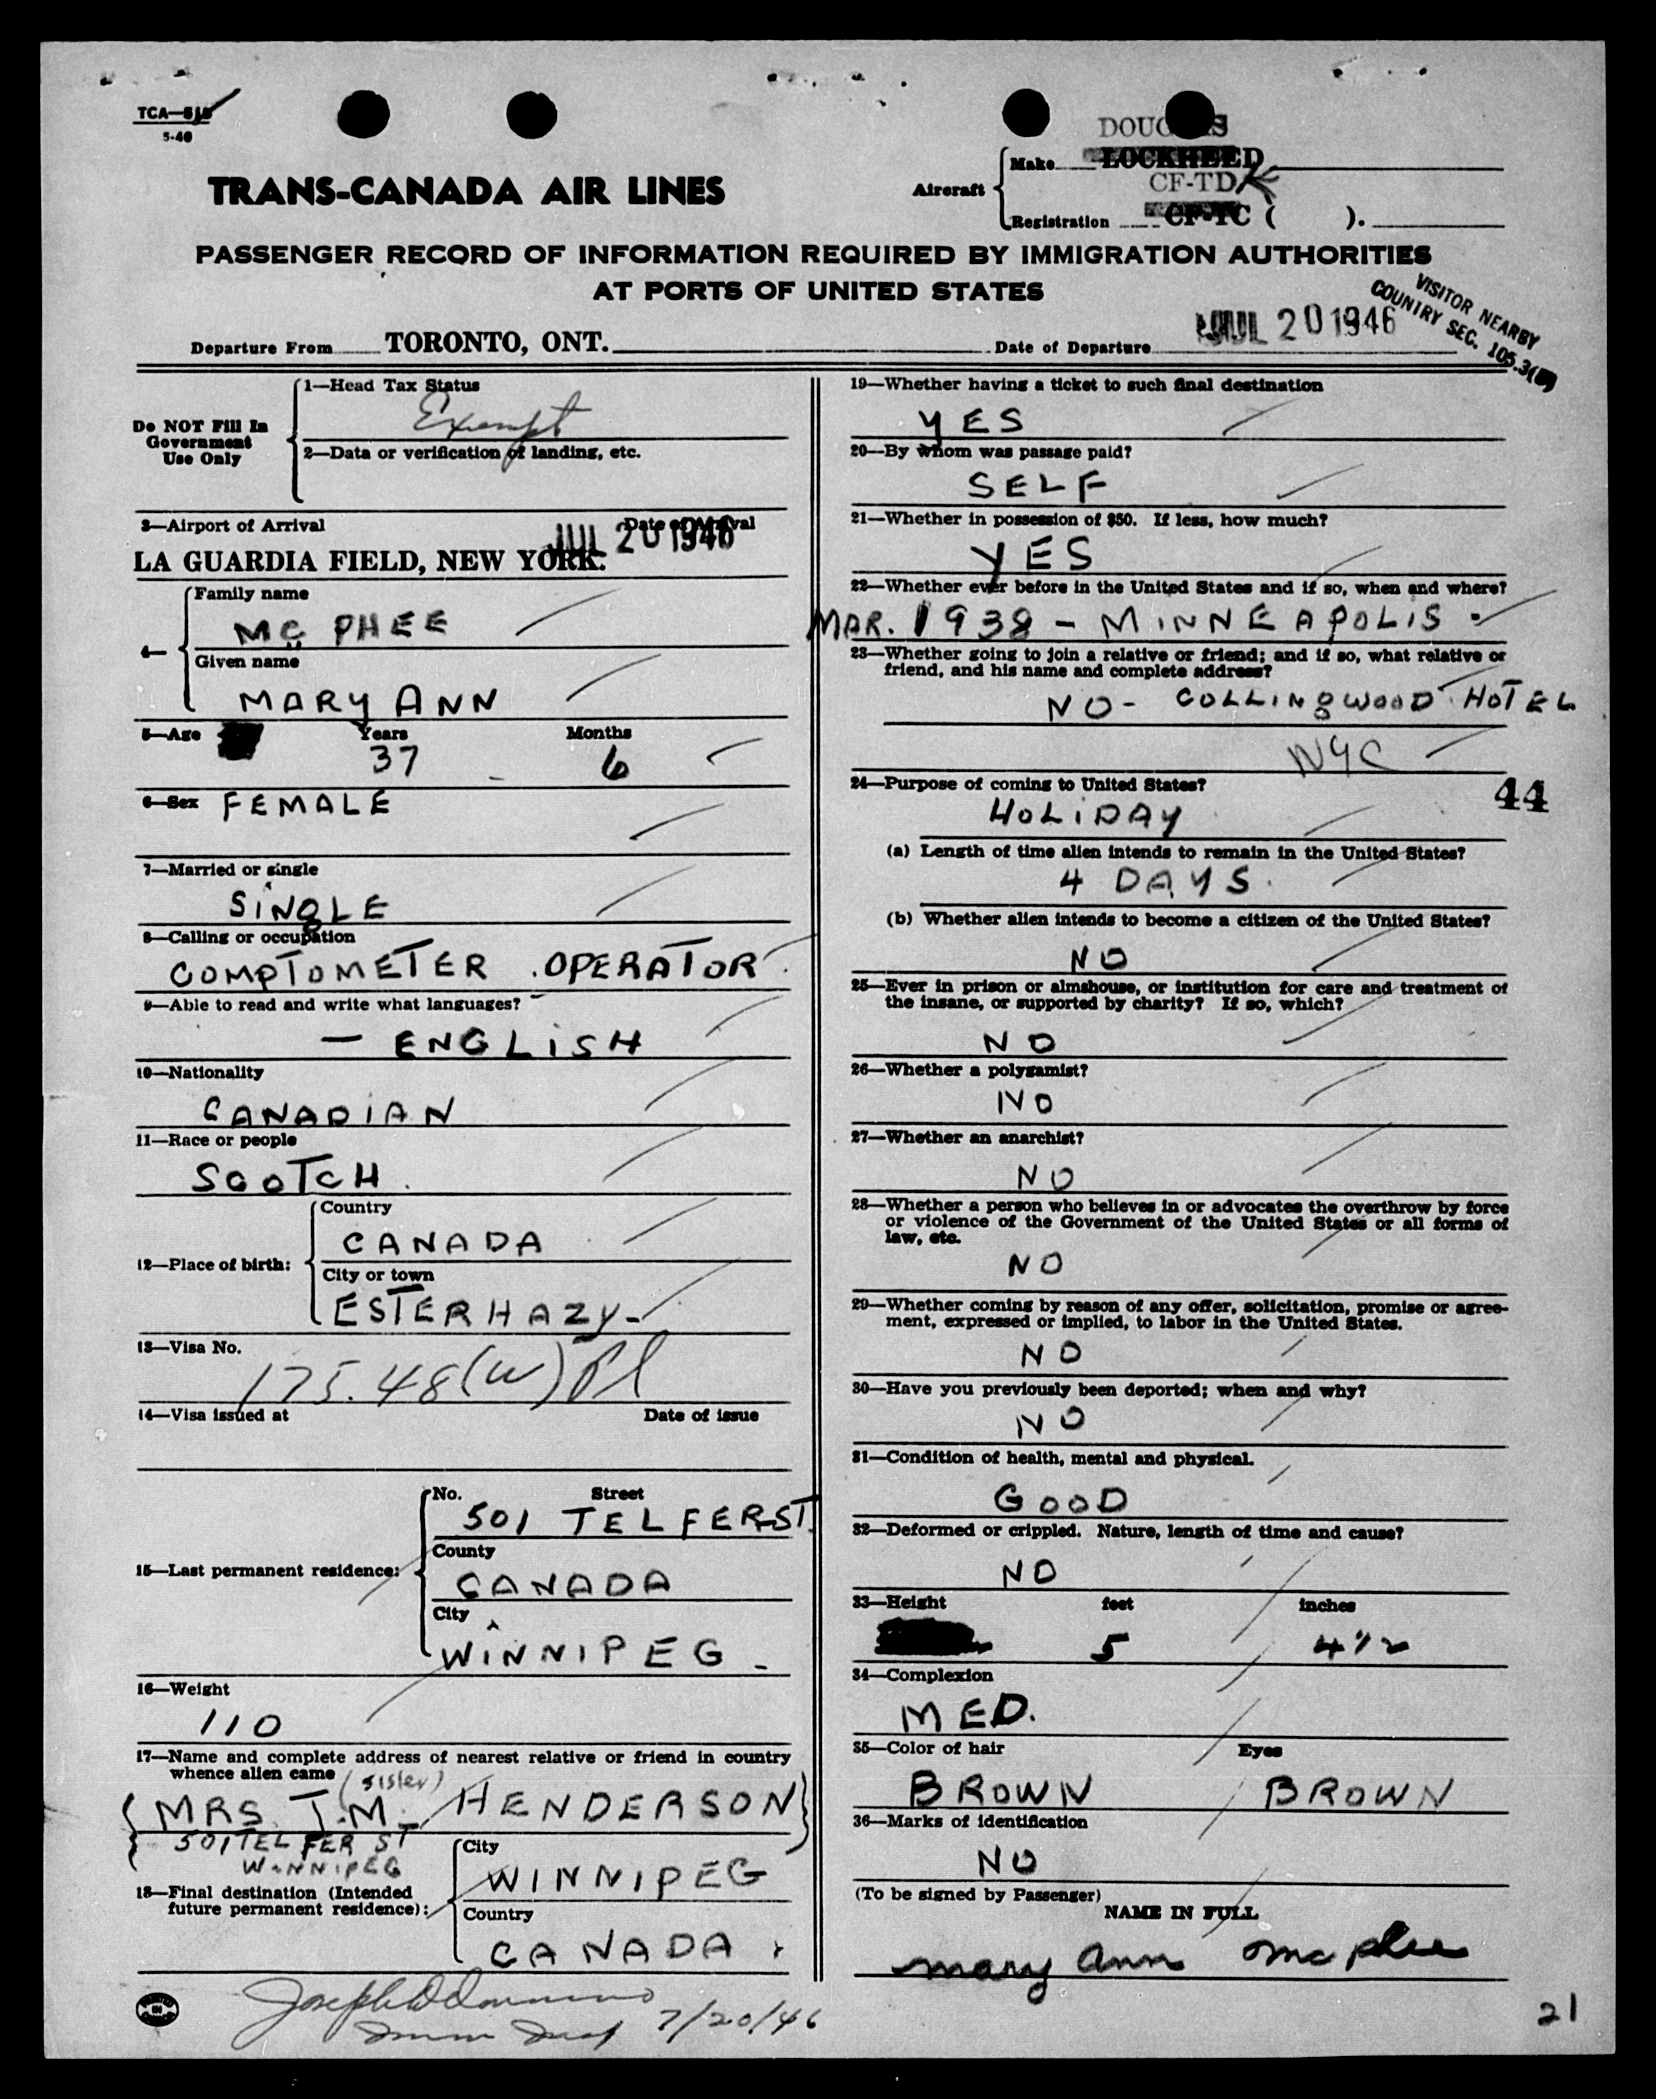 TCA—
5-40
DOUGLAS
Aircraft
Make LOCKHEED
CF-TDK
Registration CF-TC ( ).
TRANS-CANADA AIR LINES
PASSENGER RECORD OF INFORMATION REQUIRED BY IMMIGRATION AUTHORITIES
AT PORTS OF UNITED STATES
VISITOR NEARBY
COUNTRY SEC. 105.3
Departure From TORONTO, ONT. Date of Departure JUL 20 1946
Do NOT Fill In
Government
Use Only
1—Head Tax Status
Exempt
2—Data or verification of landing, etc.
3—Airport of Arrival Date of Arrival
LA GUARDIA FIELD, NEW YORK. JUL 20 1946
4—
Family name
MC PHEE
Given name
MARY ANN
5—Age Years Months
37 6
6—Sex FEMALE
7—Married or single
SINGLE
8—Calling or occupation
COMPTOMETER OPERATOR
9—Able to read and write what languages?
— ENGLISH
10—Nationality
CANADIAN
11—Race or people
SCOTCH.
12—Place of birth:
Country
CANADA
City or town
ESTERHAZY-
13—Visa No.
175.48(W)
14—Visa issued at Date of issue
15—Last permanent residence:
No. Street
501 TELFER ST.
County
CANADA
City
WINNIPEG -
16—Weight
110
17—Name and complete address of nearest relative or friend in country
whence alien came (sister)
MRS. T.M. HENDERSON
501 TELFER ST
WINNIPEG
18—Final destination (Intended
future permanent residence):
City
WINNIPEG
Country
CANADA
19—Whether having a ticket to such final destination
YES
20—By whom was passage paid?
SELF
21—Whether in possession of $50. If less, how much?
YES
22—Whether ever before in the United States and if so, when and where?
MAR. 1938 - MINNEAPOLIS.
23—Whether going to join a relative or friend; and if so, what relative or
friend, and his name and complete address?
NO- COLLINGWOOD HOTEL
NYC
24—Purpose of coming to United States?
HOLIDAY
44
(a) Length of time alien intends to remain in the United States?
4 DAYS.
(b) Whether alien intends to become a citizen of the United States?
NO
25—Ever in prison or almshouse, or institution for care and treatment of
the insane, or supported by charity? If so, which?
NO
26—Whether a polygamist?
NO
27—Whether an anarchist?
NO
28—Whether a person who believes in or advocates the overthrow by force
or violence of the Government of the United States or all forms of
law, etc.
NO
29—Whether coming by reason of any offer, solicitation, promise or agree-
ment, expressed or implied, to labor in the United States.
NO
30—Have you previously been deported; when and why?
NO
31—Condition of health, mental and physical.
GOOD
32—Deformed or crippled. Nature, length of time and cause?
NO
33—Height feet inches
5 4 1/2
34—Complexion
MED.
35—Color of hair Eyes
BROWN BROWN
36—Marks of identification
NO
(To be signed by Passenger)
NAME IN FULL
Mary Ann McPhee
Joseph
7/20/46
21